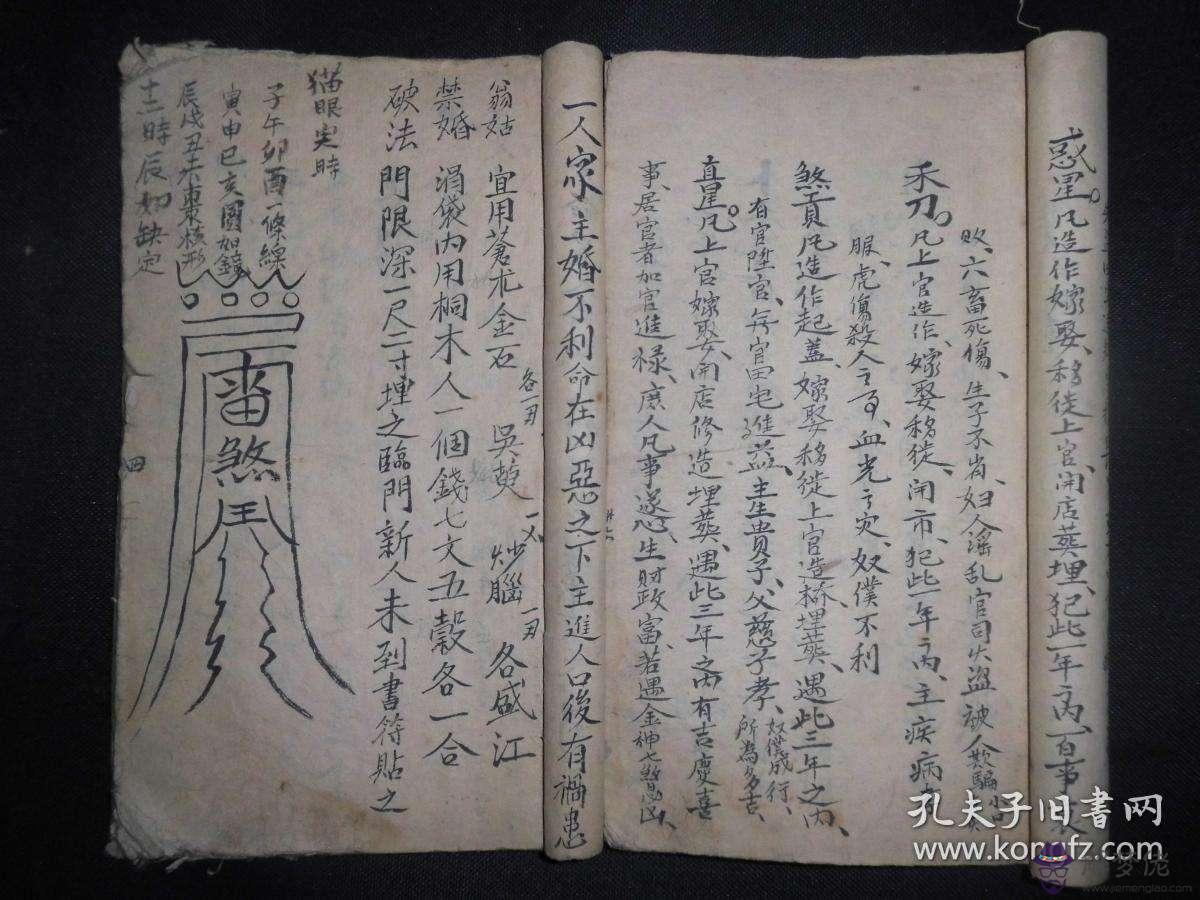 惑星。凡造作嫁娶、移徙上官、開店葬埋、犯此一年內、百事
敗、六畜死傷、生子不肖、婦人淫乱官司失盜被人欺騙
禾刀。凡上官造作、嫁娶移徙、開市、犯些一年內、主疾病
服、虎傷殺人之事、血光之灾、奴僕不利
煞貢凡造作起蓋、嫁娶移徙上官造橋埋葬、遇此三年之內、
有官陞官、無官田宅進益、主生貴子、父慈子孝、奴僕成行、所為多吉、
直星。凡上官嫁娶、開店修造埋葬、遇此三年之內有吉慶喜
事、居官者加官進祿、庶人凡事遂心、生財致富、若遇金神七煞凶、
一人家主婚不利命在凶惡之下主進人口後有禍患
翁姑 宜用蒼朮金石 各一刄 吳萸 一乂 炒腦 一刄 各盛江
禁婚 涓袋内用桐木人一個錢七文五穀各一合
破法 門限深一尺二寸埋之臨門新人未到書符貼之
猫眼定時
子午卯酉一條線
寅申巳亥圓如鏡
辰戌丑未棗核形
十二時辰如缺定
煞
四
孔夫子旧书网
www.kongfz.com
解梦佬
www.jiemenglao.com